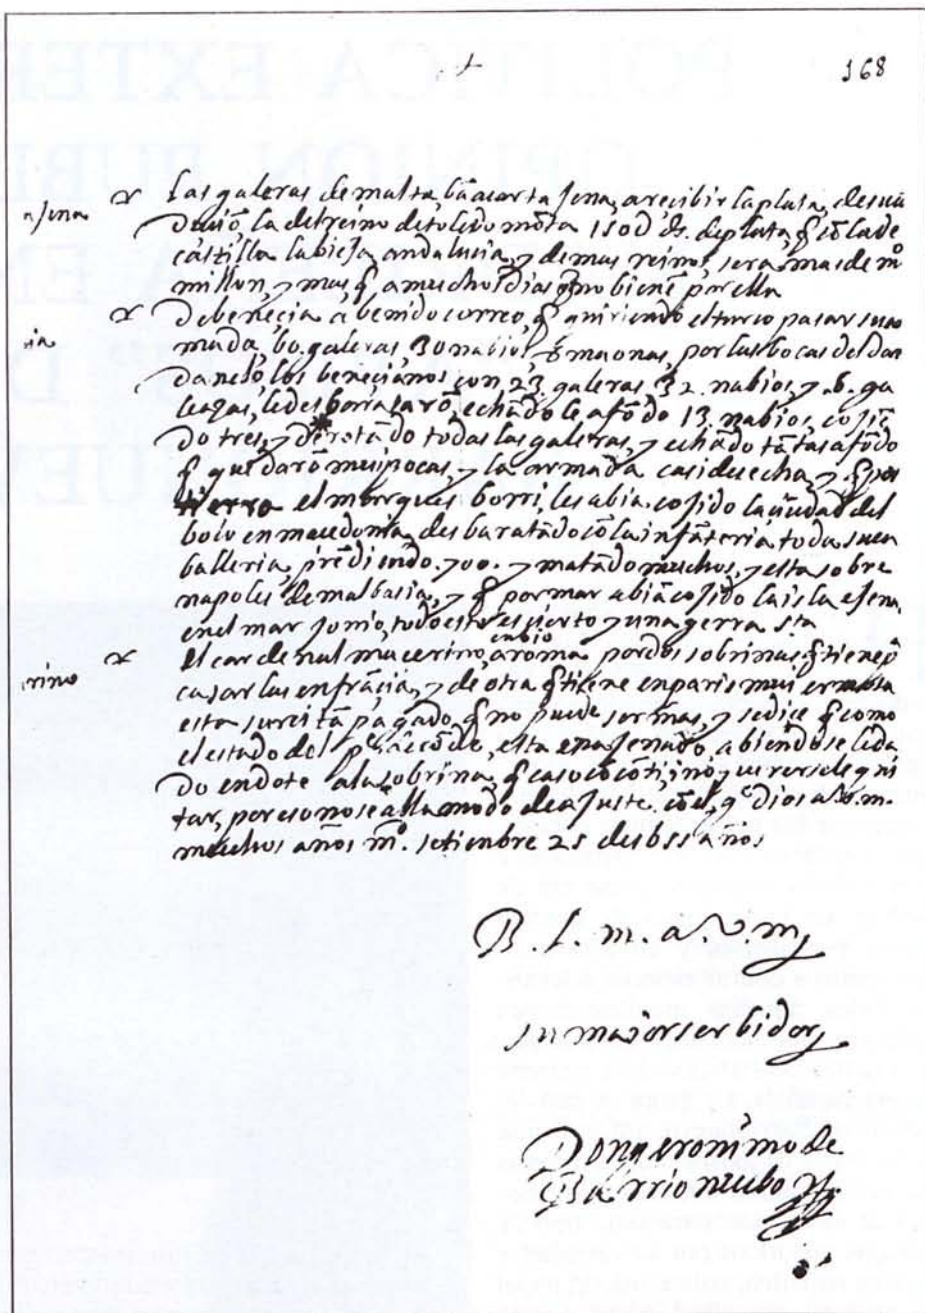 168
Las galeras de malta, bā a carta jena, a recibir la plata, de su
la del reino de toledo mōta 150 ds. de plata, q̃ cō la de
castilla la bieja andalusia, y demas reinos, sera mas de mº
millon, y mas, q̃ a muchos dias q̃ no bienē por ella
De beneçia a benido correo, q̃ quiriendo el turco pasar su ar
mada, 60. galeras, 30 nabios, maonas, por las bocas del dar
danelo, los beneçianos con 23. galeras, 32. nabios, y .6. ga
leazas, le desbarrataron, echādo le a fōdo 13 nabios, cojiē
do tres, y derotādo todas las galeras, y echādo tātas a fōdo
q̃ quedarō mui pocas, y la armada casi desecha y q̃ por
tierra el marques borri, les abia cojido la ciudad del
bolo en macedonia, desbaratādo cō la infāteria toda su ca
balleria, prēdiendo .700. y matādo muchos, y esta sobre
napoles de malbasia, y q̃ por mar abiā cojido la isla ejena,
en el mar jonio, todo esto es çierto
rino
El cardenal macerino, enbio a roma por dos sobrinas, q̃ tiene pª
casarlas en frācia, y de otra q̃ tiene en paris mui ermosa
esta su rei tā pagado, q̃ no puede ser mas, y se dice q̃ como
el estado del pe de cōde, esta enajenado, abiēdosele da
do en dote a la sobrina, q̃ caso cō cōti, i no querersele qui
tar, por eso no se alla modo de ajuste cō el, ge dios a v. m.
muchos años mº. setienbre 25 de 1655 años
B. l. m. a. v. m
su major serbidor
Don geronimo de
Barrionuebo